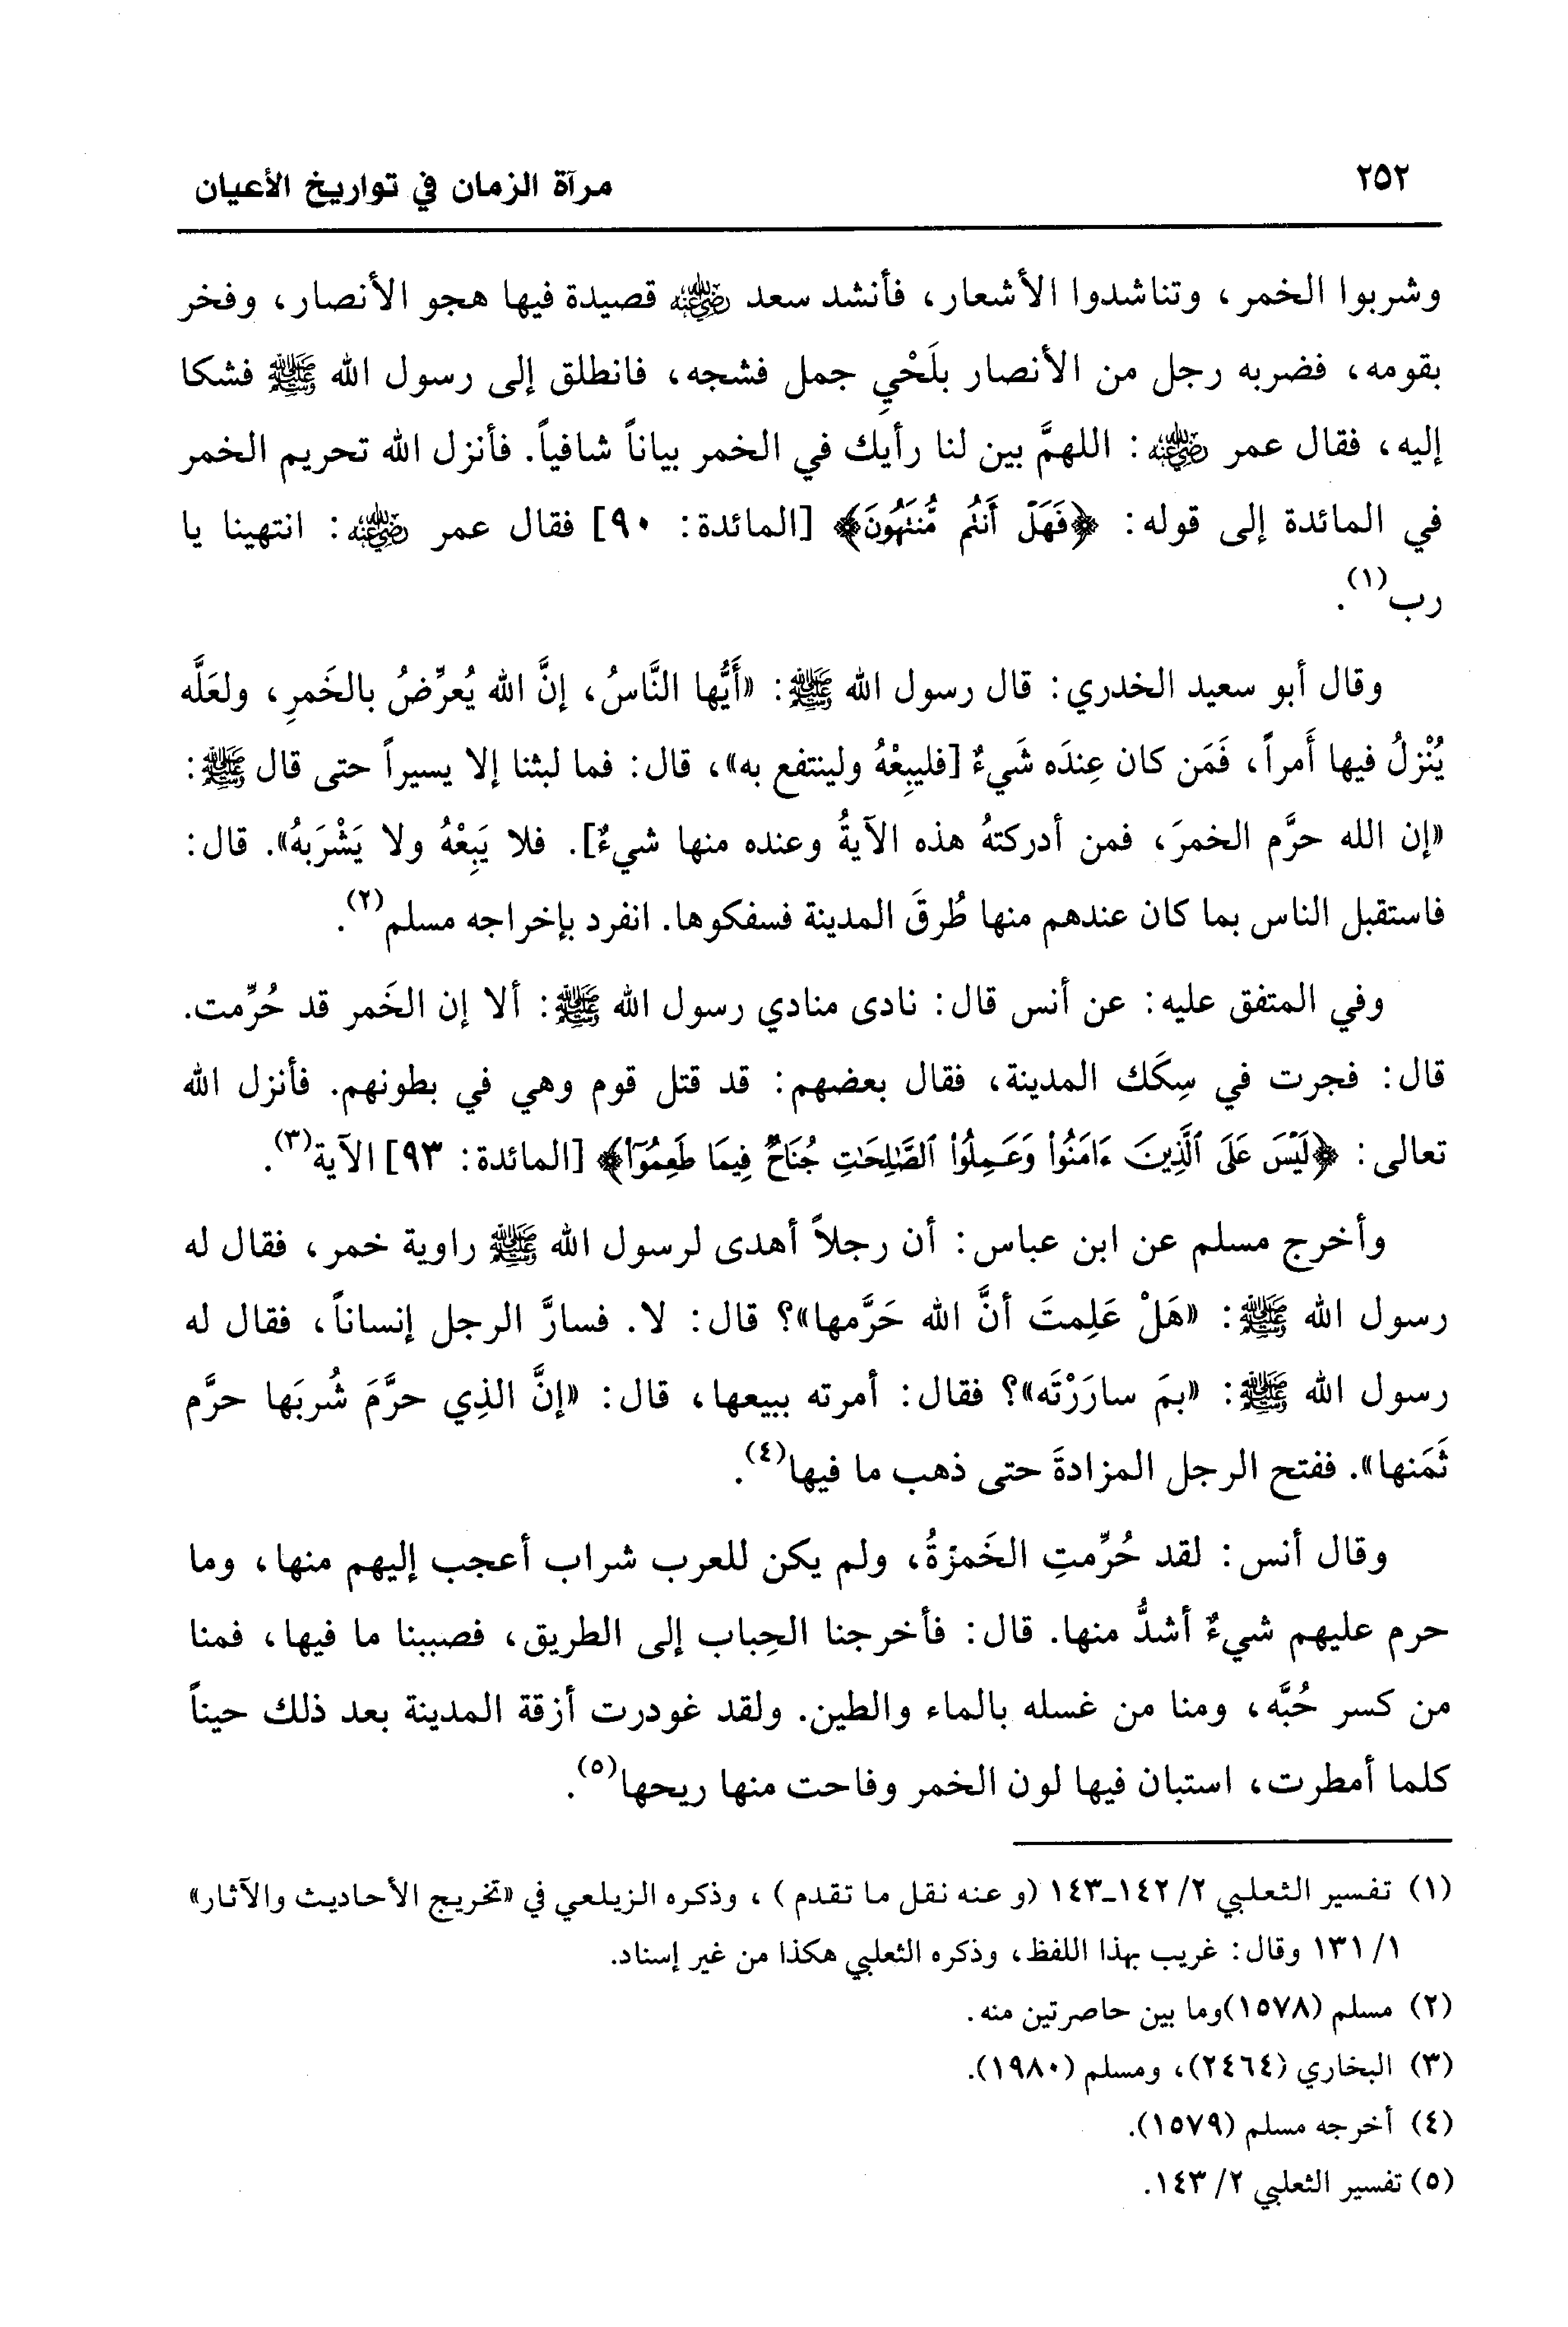 ٢٥٢
مرآة الزمان في تواريخ الأعيان
وشربوا الخمر، وتناشدوا الأشعار، فأنشد سعد رضي الله عنه قصيدة فيها هجو الأنصار، وفخر
بقومه، فضربه رجل من الأنصار بلَحْيِ جمل فشجه، فانطلق إلى رسول الله ﷺ فشكا
إليه، فقال عمر رضي الله عنه: اللهمَّ بين لنا رأيك في الخمر بياناً شافياً. فأنزل الله تحريم الخمر
في المائدة إلى قوله: ﴿فَهَلْ أَنتُم مُّنتَهُونَ﴾ [المائدة: ٩٠] فقال عمر رضي الله عنه: انتهينا يا
رب(١).
وقال أبو سعيد الخدري: قال رسول الله ﷺ: «أَيُّها النَّاسُ، إنَّ الله يُعرِّضُ بالخَمرِ، ولعَلَّه
يُنْزلُ فيها أَمراً، فَمَن كان عِندَه شَيءٌ [فليبِعْهُ ولينتفع به»، قال: فما لبثنا إلا يسيراً حتى قال ﷺ:
«إن الله حرَّم الخمرَ، فمن أدركتهُ هذه الآيةُ وعنده منها شيءٌ]. فلا يَبِعْهُ ولا يَشْرَبهُ». قال:
فاستقبل الناس بما كان عندهم منها طُرقَ المدينة فسفكوها. انفرد بإخراجه مسلم(٢).
وفي المتفق عليه: عن أنس قال: نادى منادي رسول الله ﷺ: ألا إن الخَمر قد حُرِّمت.
قال: فجرت في سِكَك المدينة، فقال بعضهم: قد قتل قوم وهي في بطونهم. فأنزل الله
تعالى: ﴿لَيْسَ عَلَى ٱلَّذِينَ ءَامَنُوا۟ وَعَمِلُوا۟ ٱلصَّٰلِحَٰتِ جُنَاحٌ فِيمَا طَعِمُوٓا۟﴾ [المائدة: ٩٣] الآية(٣).
وأخرج مسلم عن ابن عباس: أن رجلاً أهدى لرسول الله ﷺ راوية خمر، فقال له
رسول الله ﷺ: «هَلْ عَلِمتَ أنَّ الله حَرَّمها»؟ قال: لا. فسارَّ الرجل إنساناً، فقال له
رسول الله ﷺ: «بمَ سارَرْتَه»؟ فقال: أمرته ببيعها، قال: «إنَّ الذِي حرَّمَ شُربَها حرَّم
ثَمَنها». ففتح الرجل المزادةَ حتى ذهب ما فيها(٤).
وقال أنس: لقد حُرِّمتِ الخَمرْةُ، ولم يكن للعرب شراب أعجب إليهم منها، وما
حرم عليهم شيءٌ أشدُّ منها. قال: فأخرجنا الحِباب إلى الطريق، فصببنا ما فيها، فمنا
من كسر حُبَّه، ومنا من غسله بالماء والطين. ولقد غودرت أزقة المدينة بعد ذلك حيناً
كلما أمطرت، استبان فيها لون الخمر وفاحت منها ريحها(٥).
(١) تفسير الثعلبي ٢/ ١٤٢-١٤٣ (وعنه نقل ما تقدم)، وذكره الزيلعي في «تخريج الأحاديث والآثار»
١/ ١٣١ وقال: غريب بهذا اللفظ، وذكره الثعلبي هكذا من غير إسناد.
(٢) مسلم (١٥٧٨)وما بين حاصرتين منه.
(٣) البخاري (٢٤٦٤)، ومسلم (١٩٨٠).
(٤) أخرجه مسلم (١٥٧٩).
(٥) تفسير الثعلبي ٢/ ١٤٣.